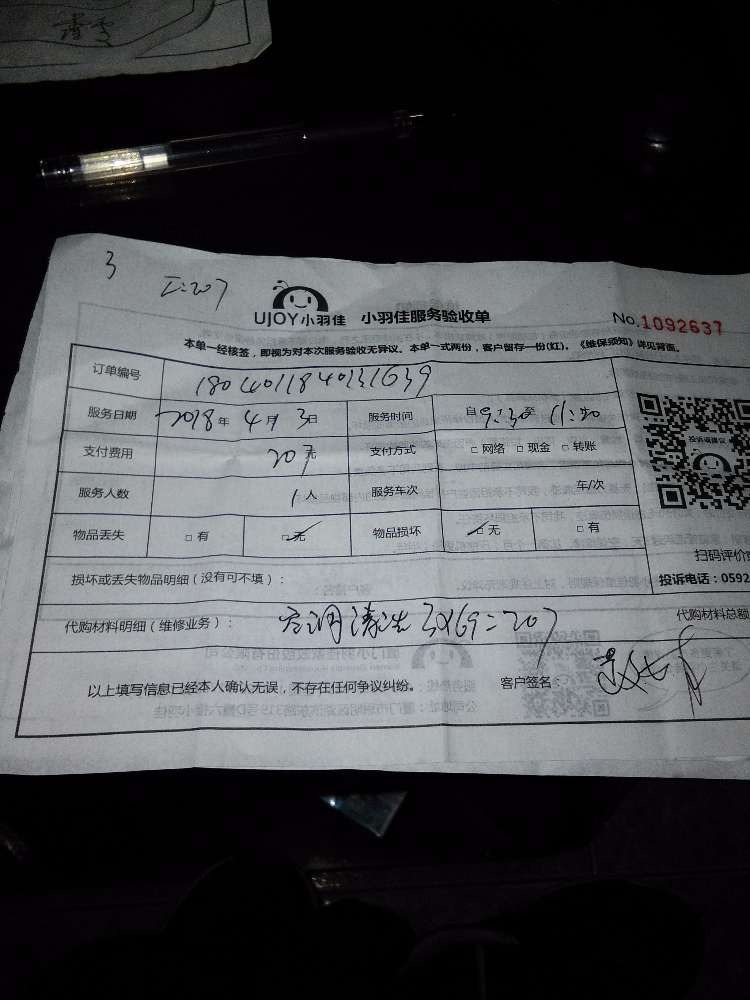 3
I:207
UJOY小羽佳 小羽佳服务验收单 No.1092637
本单一经核签，即视为对本次服务验收无异议。本单一式两份，客户留存一份(红)。《维保须知》详见背面。
订单编号
服务日期 2018年 4月 3日 服务时间 自 9:30 至 11:20
支付费用 207元 支付方式 □ 网络 □ 现金 □ 转账
投诉或建议
服务人数 1人 服务车次 车/次
物品丢失 □ 有 □ 无 物品损坏 □ 无 □ 有
扫码评价
损坏或丢失物品明细（没有可不填）： 投诉电话：0592
代购材料明细（维修业务）： 空调清洗 3x69=207 代购材料总额
以上填写信息已经本人确认无误，不存在任何争议纠纷。 客户签名：